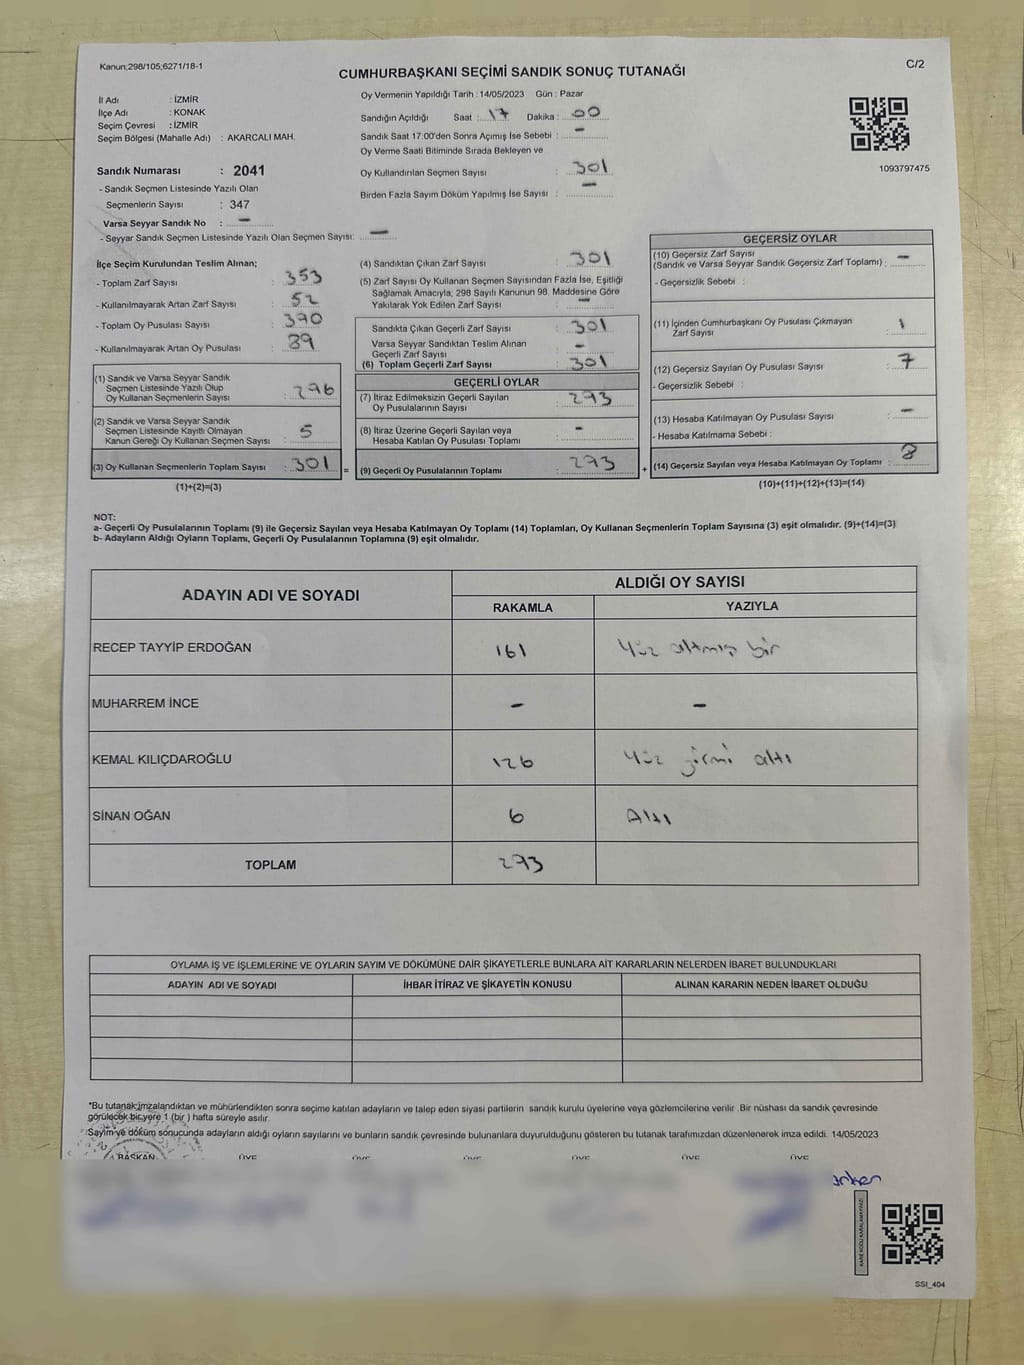 Kanun;298/105;6271/18-1
C/2
CUMHURBAŞKANI SEÇİMİ SANDIK SONUÇ TUTANAĞI
İl Adı : İZMİR
İlçe Adı : KONAK
Seçim Çevresi : İZMİR
Seçim Bölgesi (Mahalle Adı) : AKARCALI MAH.
Sandık Numarası : 2041
- Sandık Seçmen Listesinde Yazılı Olan
Seçmenlerin Sayısı : 347
Varsa Seyyar Sandık No : -
- Seyyar Sandık Seçmen Listesinde Yazılı Olan Seçmen Sayısı: -
Oy Vermenin Yapıldığı Tarih : 14/05/2023 Gün : Pazar
Sandığın Açıldığı Saat : 17 Dakika : 00
Sandık Saat 17:00'den Sonra Açımış İse Sebebi : -
Oy Verme Saati Bitiminde Sırada Bekleyen ve
Oy Kullandırılan Seçmen Sayısı : 301
Birden Fazla Sayım Döküm Yapılmış İse Sayısı : -
1093797475
İlçe Seçim Kurulundan Teslim Alınan;
- Toplam Zarf Sayısı : 353
- Kullanılmayarak Artan Zarf Sayısı : 52
- Toplam Oy Pusulası Sayısı : 390
- Kullanılmayarak Artan Oy Pusulası : 89
(1) Sandık ve Varsa Seyyar Sandık
Seçmen Listesinde Yazılı Olup
Oy Kullanan Seçmenlerin Sayısı : 296
(2) Sandık ve Varsa Seyyar Sandık
Seçmen Listesinde Kayıtlı Olmayan
Kanun Gereği Oy Kullanan Seçmen Sayısı : 5
(3) Oy Kullanan Seçmenlerin Toplam Sayısı : 301 =
(1)+(2)=(3)
(4) Sandıktan Çıkan Zarf Sayısı : 301
(5) Zarf Sayısı Oy Kullanan Seçmen Sayısından Fazla İse, Eşitliği
Sağlamak Amacıyla; 298 Sayılı Kanunun 98. Maddesine Göre
Yakılarak Yok Edilen Zarf Sayısı : -
Sandıkta Çıkan Geçerli Zarf Sayısı : 301
Varsa Seyyar Sandıktan Teslim Alınan
Geçerli Zarf Sayısı : -
(6) Toplam Geçerli Zarf Sayısı : 301
GEÇERLİ OYLAR
(7) İtiraz Edilmeksizin Geçerli Sayılan
Oy Pusulalarının Sayısı : 293
(8) İtiraz Üzerine Geçerli Sayılan veya
Hesaba Katılan Oy Pusulası Toplamı : -
(9) Geçerli Oy Pusulalarının Toplamı : 293 +
GEÇERSİZ OYLAR
(10) Geçersiz Zarf Sayısı
(Sandık ve Varsa Seyyar Sandık Geçersiz Zarf Toplamı) : -
- Geçersizlik Sebebi :
(11) İçinden Cumhurbaşkanı Oy Pusulası Çıkmayan
Zarf Sayısı : 1
(12) Geçersiz Sayılan Oy Pusulası Sayısı : 7
- Geçersizlik Sebebi :
(13) Hesaba Katılmayan Oy Pusulası Sayısı : -
- Hesaba Katılmama Sebebi :
(14) Geçersiz Sayılan veya Hesaba Katılmayan Oy Toplamı : 8
(10)+(11)+(12)+(13)=(14)
NOT:
a- Geçerli Oy Pusulalarının Toplamı (9) ile Geçersiz Sayılan veya Hesaba Katılmayan Oy Toplamı (14) Toplamları, Oy Kullanan Seçmenlerin Toplam Sayısına (3) eşit olmalıdır. (9)+(14)=(3)
b- Adayların Aldığı Oyların Toplamı, Geçerli Oy Pusulalarının Toplamına (9) eşit olmalıdır.
ADAYIN ADI VE SOYADI ALDIĞI OY SAYISI
RAKAMLA YAZIYLA
RECEP TAYYİP ERDOĞAN 161 Yüz altmış bir
MUHARREM İNCE - -
KEMAL KILIÇDAROĞLU 126 Yüz yirmi altı
SİNAN OĞAN 6 Altı
TOPLAM 293
OYLAMA İŞ VE İŞLEMLERİNE VE OYLARIN SAYIM VE DÖKÜMÜNE DAİR ŞİKAYETLERLE BUNLARA AİT KARARLARIN NELERDEN İBARET BULUNDUKLARI
ADAYIN ADI VE SOYADI İHBAR İTİRAZ VE ŞİKAYETİN KONUSU ALINAN KARARIN NEDEN İBARET OLDUĞU
*Bu tutanak;imzalandıktan ve mühürlendikten sonra seçime katılan adayların ve talep eden siyasi partilerin sandık kurulu üyelerine veya gözlemcilerine verilir .Bir nüshası da sandık çevresinde
görülecek bir yere 1 (bir ) hafta süreyle asılır.
Sayım ve döküm sonucunda adayların aldığı oyların sayılarını ve bunların sandık çevresinde bulunanlara duyurulduğunu gösteren bu tutanak tarafımızdan düzenlenerek imza edildi. 14/05/2023
BAŞKAN ÜYE ÜYE ÜYE ÜYE ÜYE ÜYE
KARE KODU KARALAMAYINIZ!
SSI_404